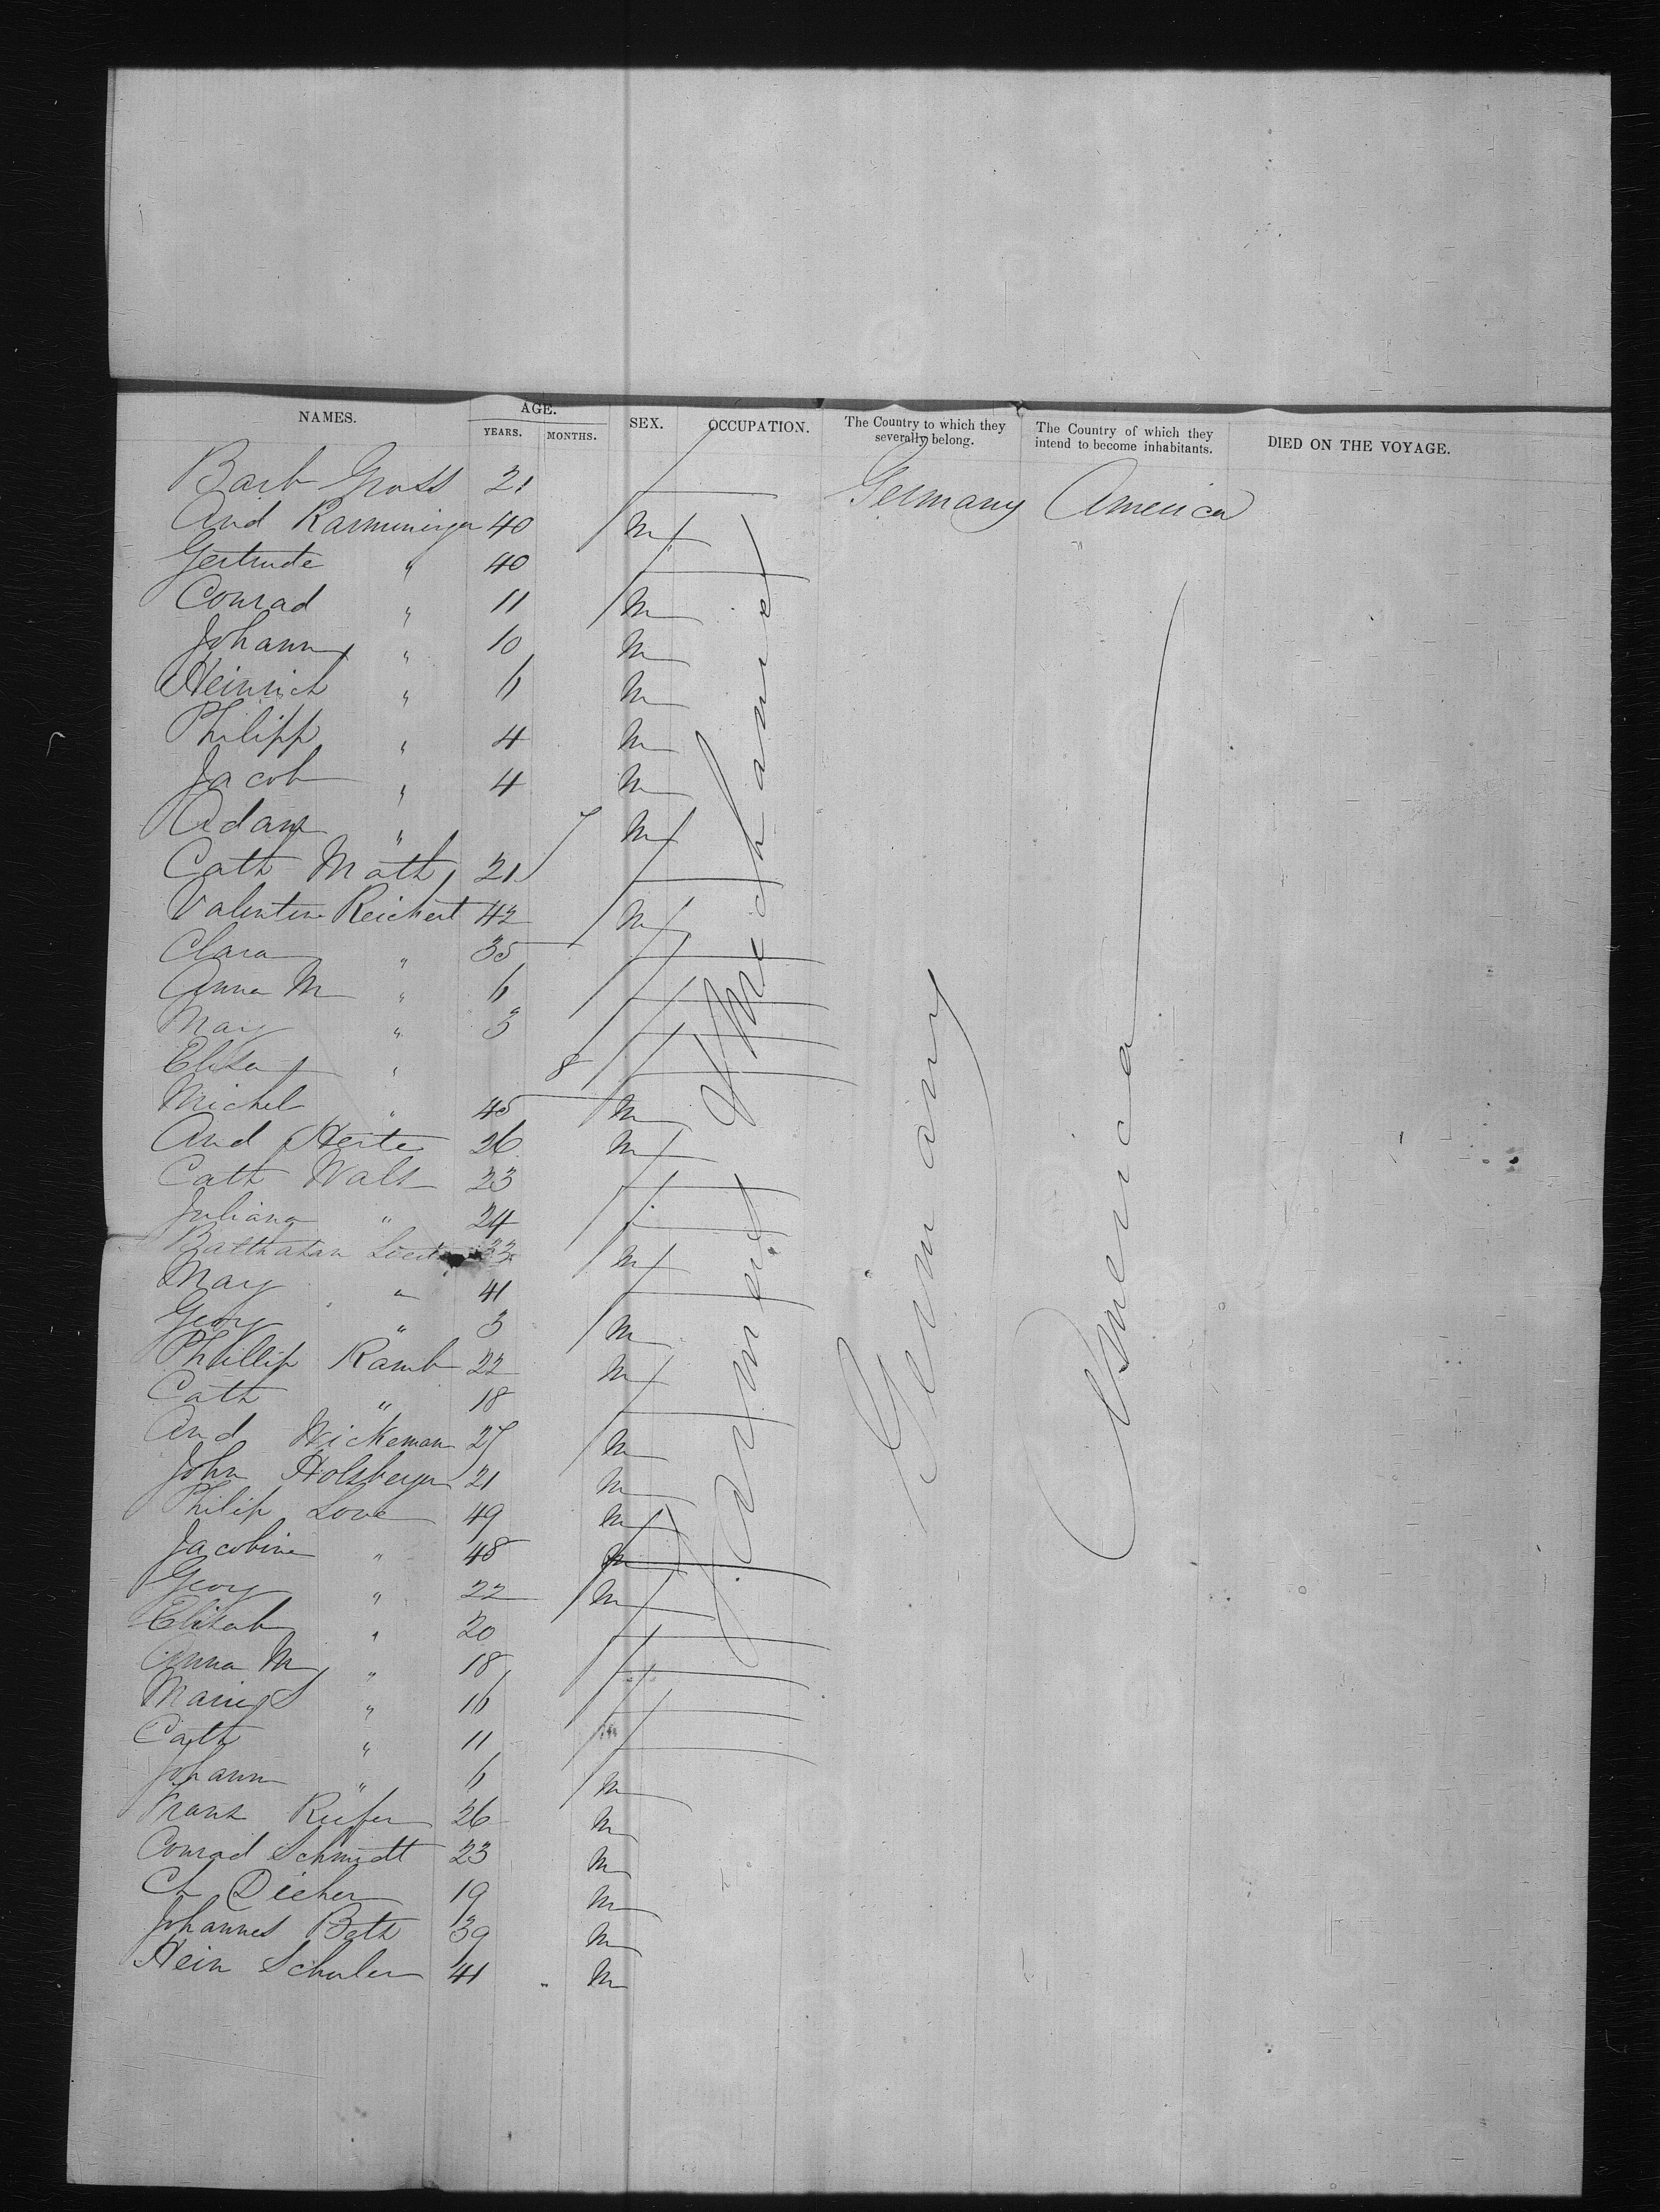 NAMES. AGE. SEX. OCCUPATION. The Country to which they severally belong. The Country of which they intend to become inhabitants. DIED ON THE VOYAGE.
YEARS. MONTHS.
Barb Gross 21 Germany America
And 40 m
Gertrude " 40
Conrad " 11 m
Johann " 10 m
Heinrich " 6 m
Philipp " 4 m
Jacob " 4 m
Adam " 7 m
Cath Math 21
Valentin Reichert 42 m
Clara " 35
Anna M " 6
Mary " 3
Elisa " 8
Michel " 45 m
And Herte 26 m
Cath Wals 23
Juliana " 24
33 m
Mary " 41
Georg " 3 m
Phillip Ramb 22 m
Cath " 18
And Wickeman 27 m
John Holsberger 21 m
Philip Love 49 m
Jacobine " 48
Georg " 22 m
Elisab " 20
Anna M " 18
Marie S " 16
Cath " 11
Johann " 6 m
Franz 26 m
Conrad Schmidt 23 m
Ch Dieher 19 m
Johannes Beth 39 m
Hein Schuler 41 " m
Farmers & Mechanics
Germany
America